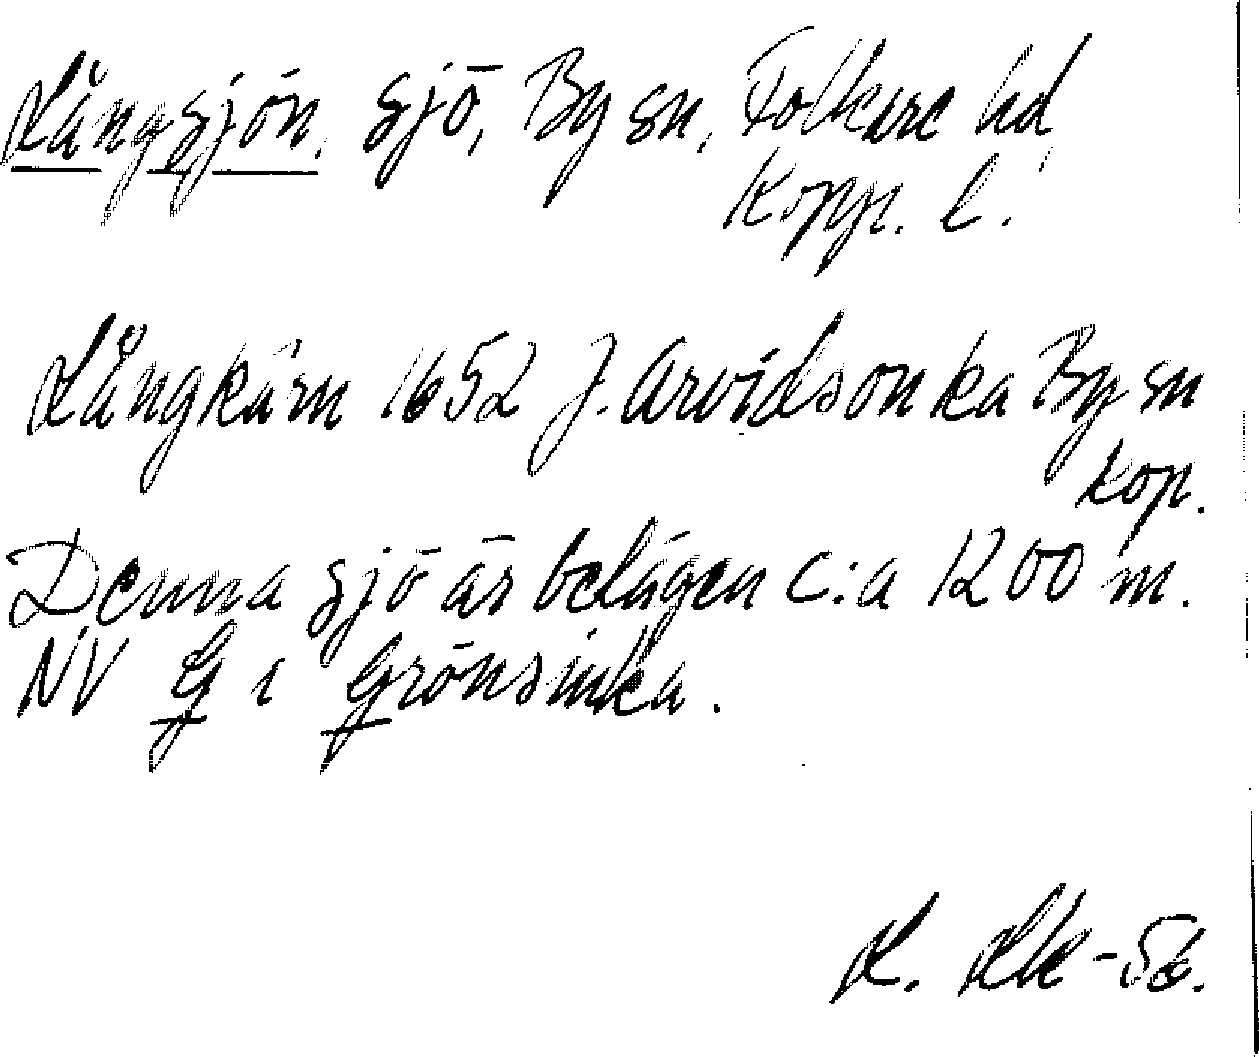 Långsjön, sjö, By sn, Folkare hd,
Kopp. l.
Långkärn 1652 J. Arvidson ka By sn
kop.
Denna sjö är belägen c:a 1200 m.
NV G i Grönsinka.